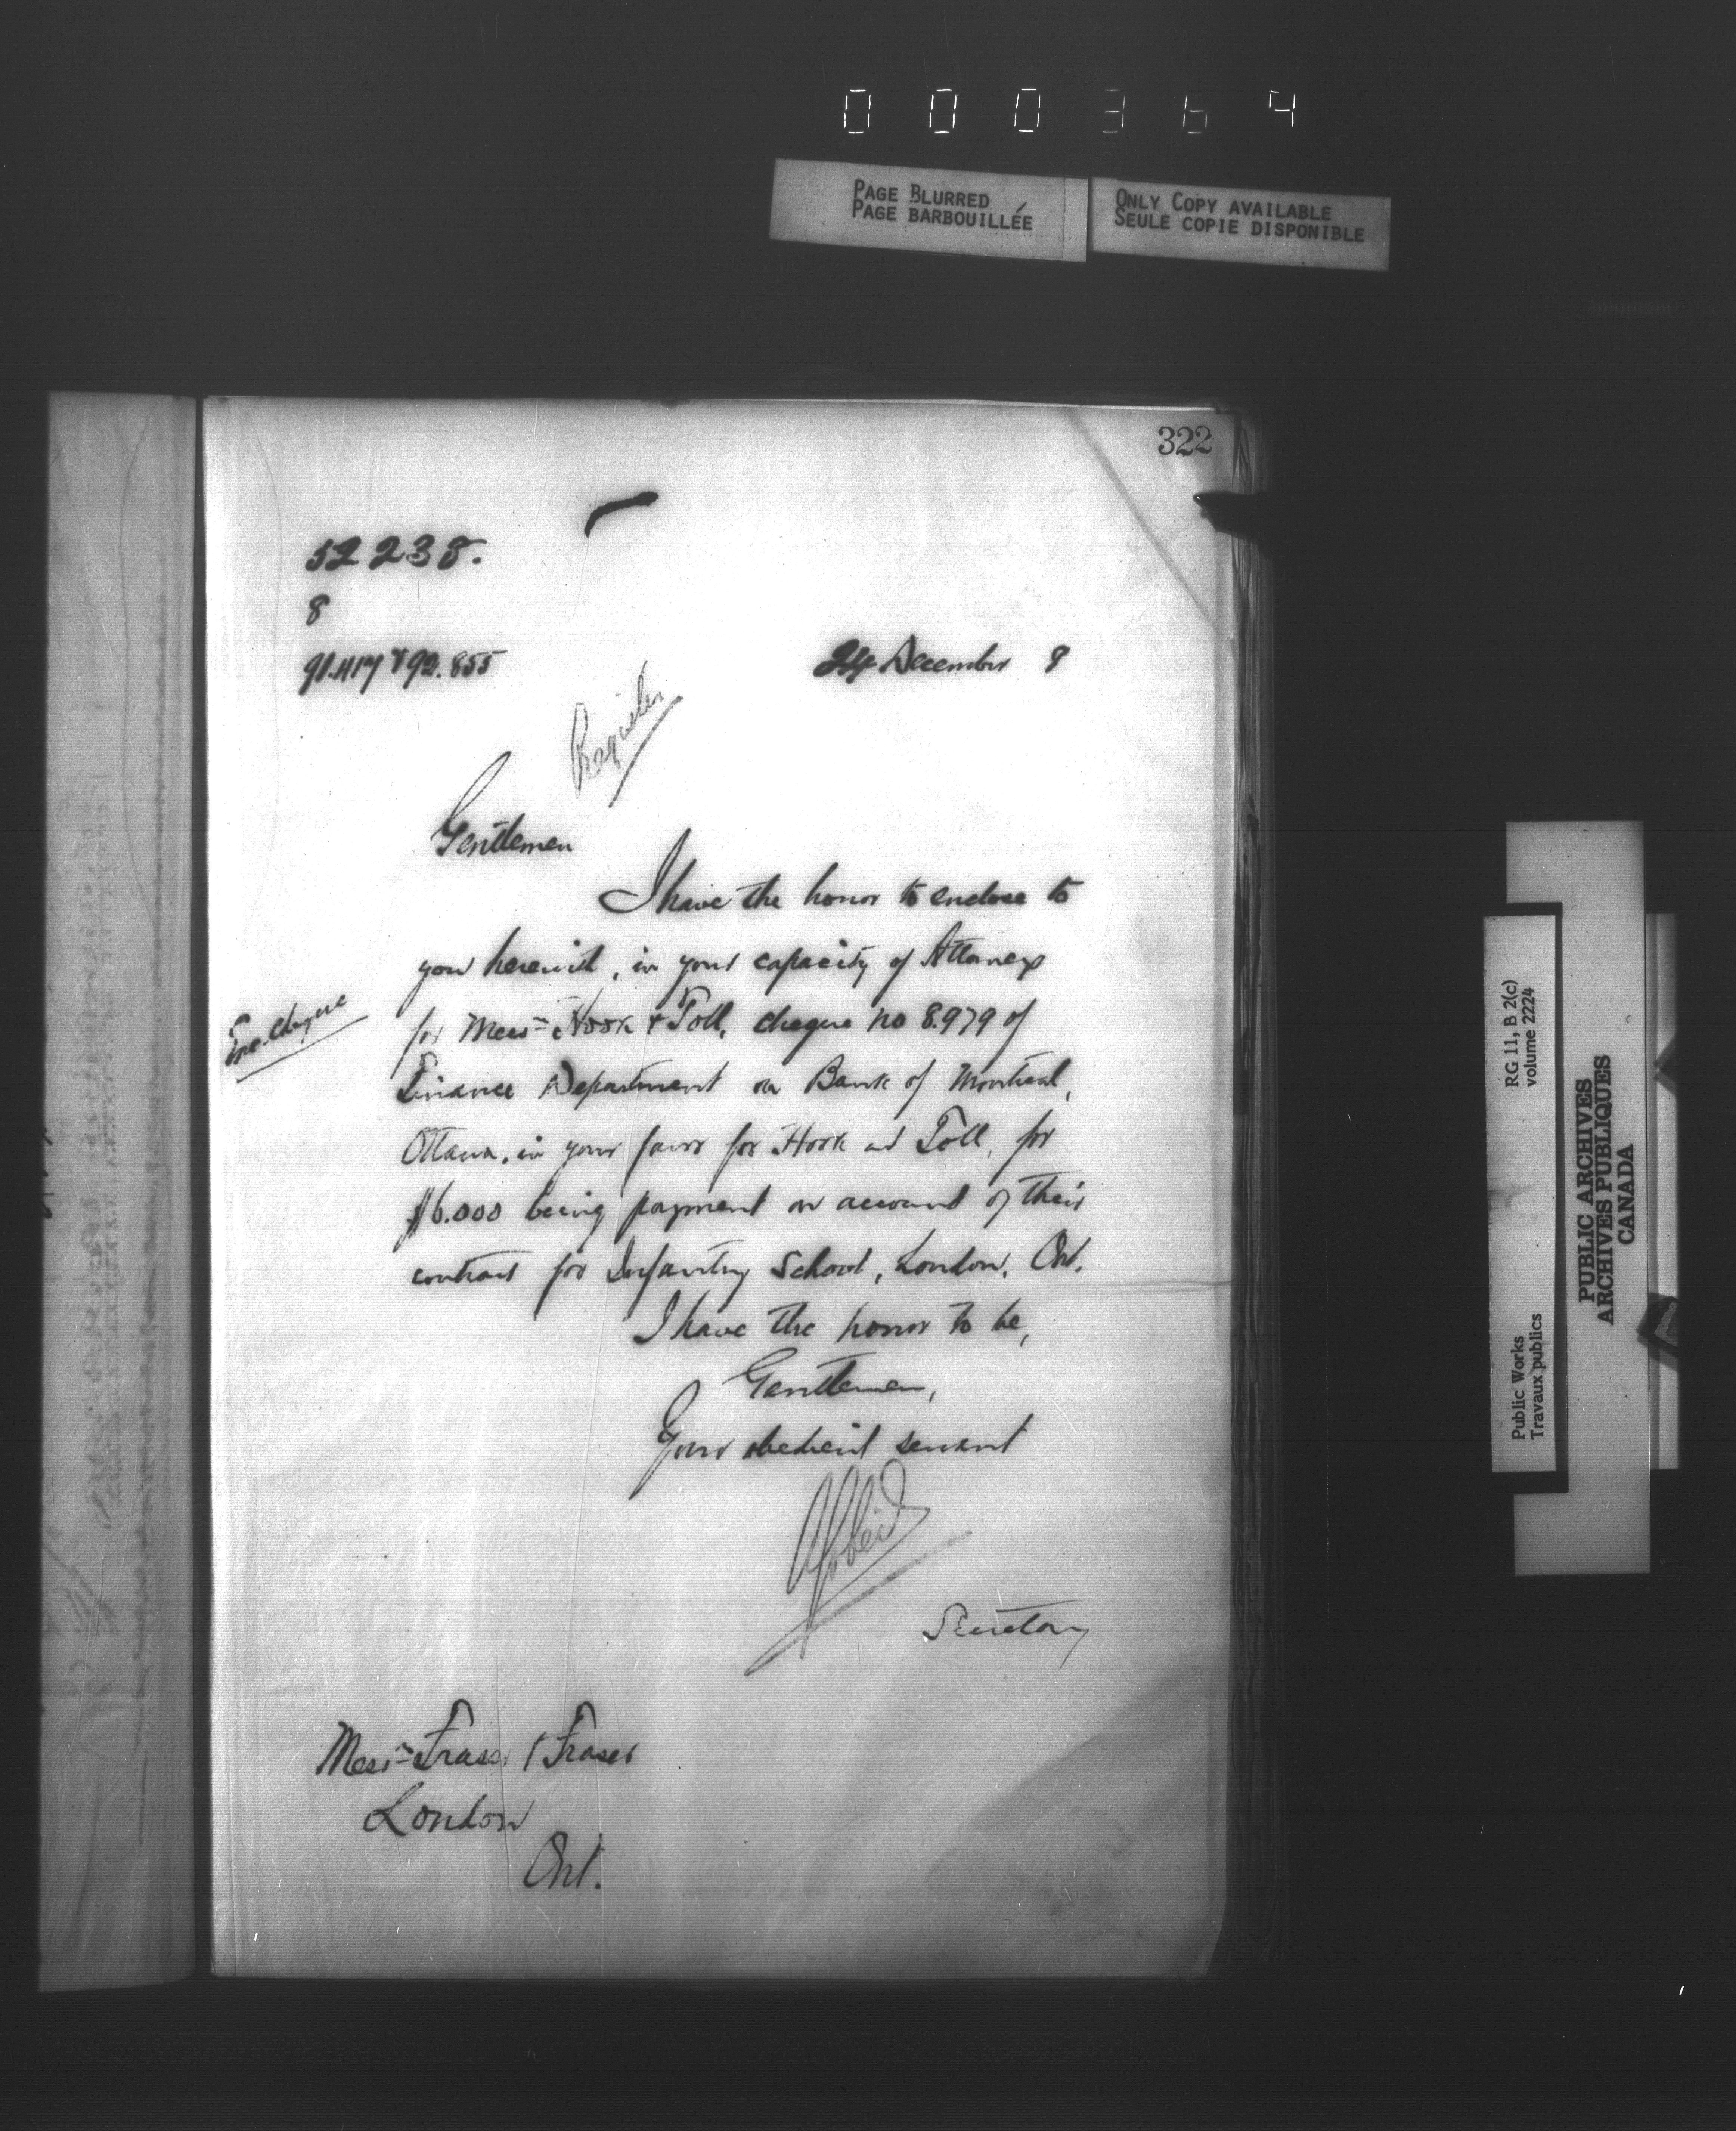 000364
PAGE BLURRED
PAGE BARBOUILLÉE
ONLY COPY AVAILABLE
SEULE COPIE DISPONIBLE
322
52238.
8
91.417 & 92.855
24 December 8
Register
Gentlemen
I have the honor to enclose to
you herewith, in your capacity of Attorneys
for Mess= Hook & Toll, cheque no 8.979 of
Enc. cheque
Finance Department on Bank of Montreal,
Ottawa, in your favor for Hook and Toll, for
$6.000 being payment on account of their
contract for Infantry School, London, Ont.
I have the honor to be,
Gentlemen,
Your obedient servant
Secretary
Mess= Fraser & Fraser
London
Ont.
RG 11, B 2(c)
volume 2224
Public Works
Travaux publics
PUBLIC ARCHIVES
ARCHIVES PUBLIQUES
CANADA